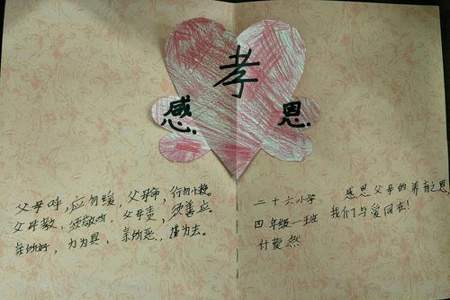 孝
感.恩.
父母呼,应勿缓,父母命,行勿懒.
父母教,须敬听,父母责,须
亲所好,力为具,亲所恶,谨为去.
感恩父母的养育之恩,
我们与爱同在!
二十六小学
四年级一班
付 然